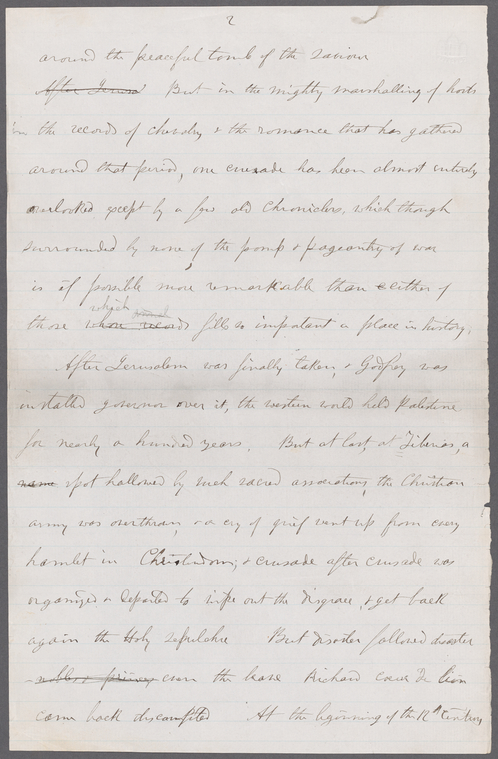 2
around the peaceful tomb of the Saviour
After Jerusa But in the mighty marshalling of hosts
in the records of chivalry & the romance that has gathered
around that period, one crusade has been almost entirely
overlooked except by a few old Chroniclers, which though
surrounded by none of the pomp & pageantry of war
is if possible more remarkable than either of
which
those whose records fills so important a place in history,
After Jerusalem was finally taken, & Godfrey was
installed governor over it, the western world held Palestine
for nearly a hundred years. But at last, at Tiberias, a
name spot hallowed by such sacred associations, the Christian
army was overthrown, & a cry of grief went up from every
hamlet in Christendom; & crusade after crusade was
organized & departed to wipe out the disgrace, & get back
again the Holy Sepulchre But disaster followed disaster
nobles & princes even the brave Richard Coeur De Lion
came back discomfited At the beginning of the 12th Century